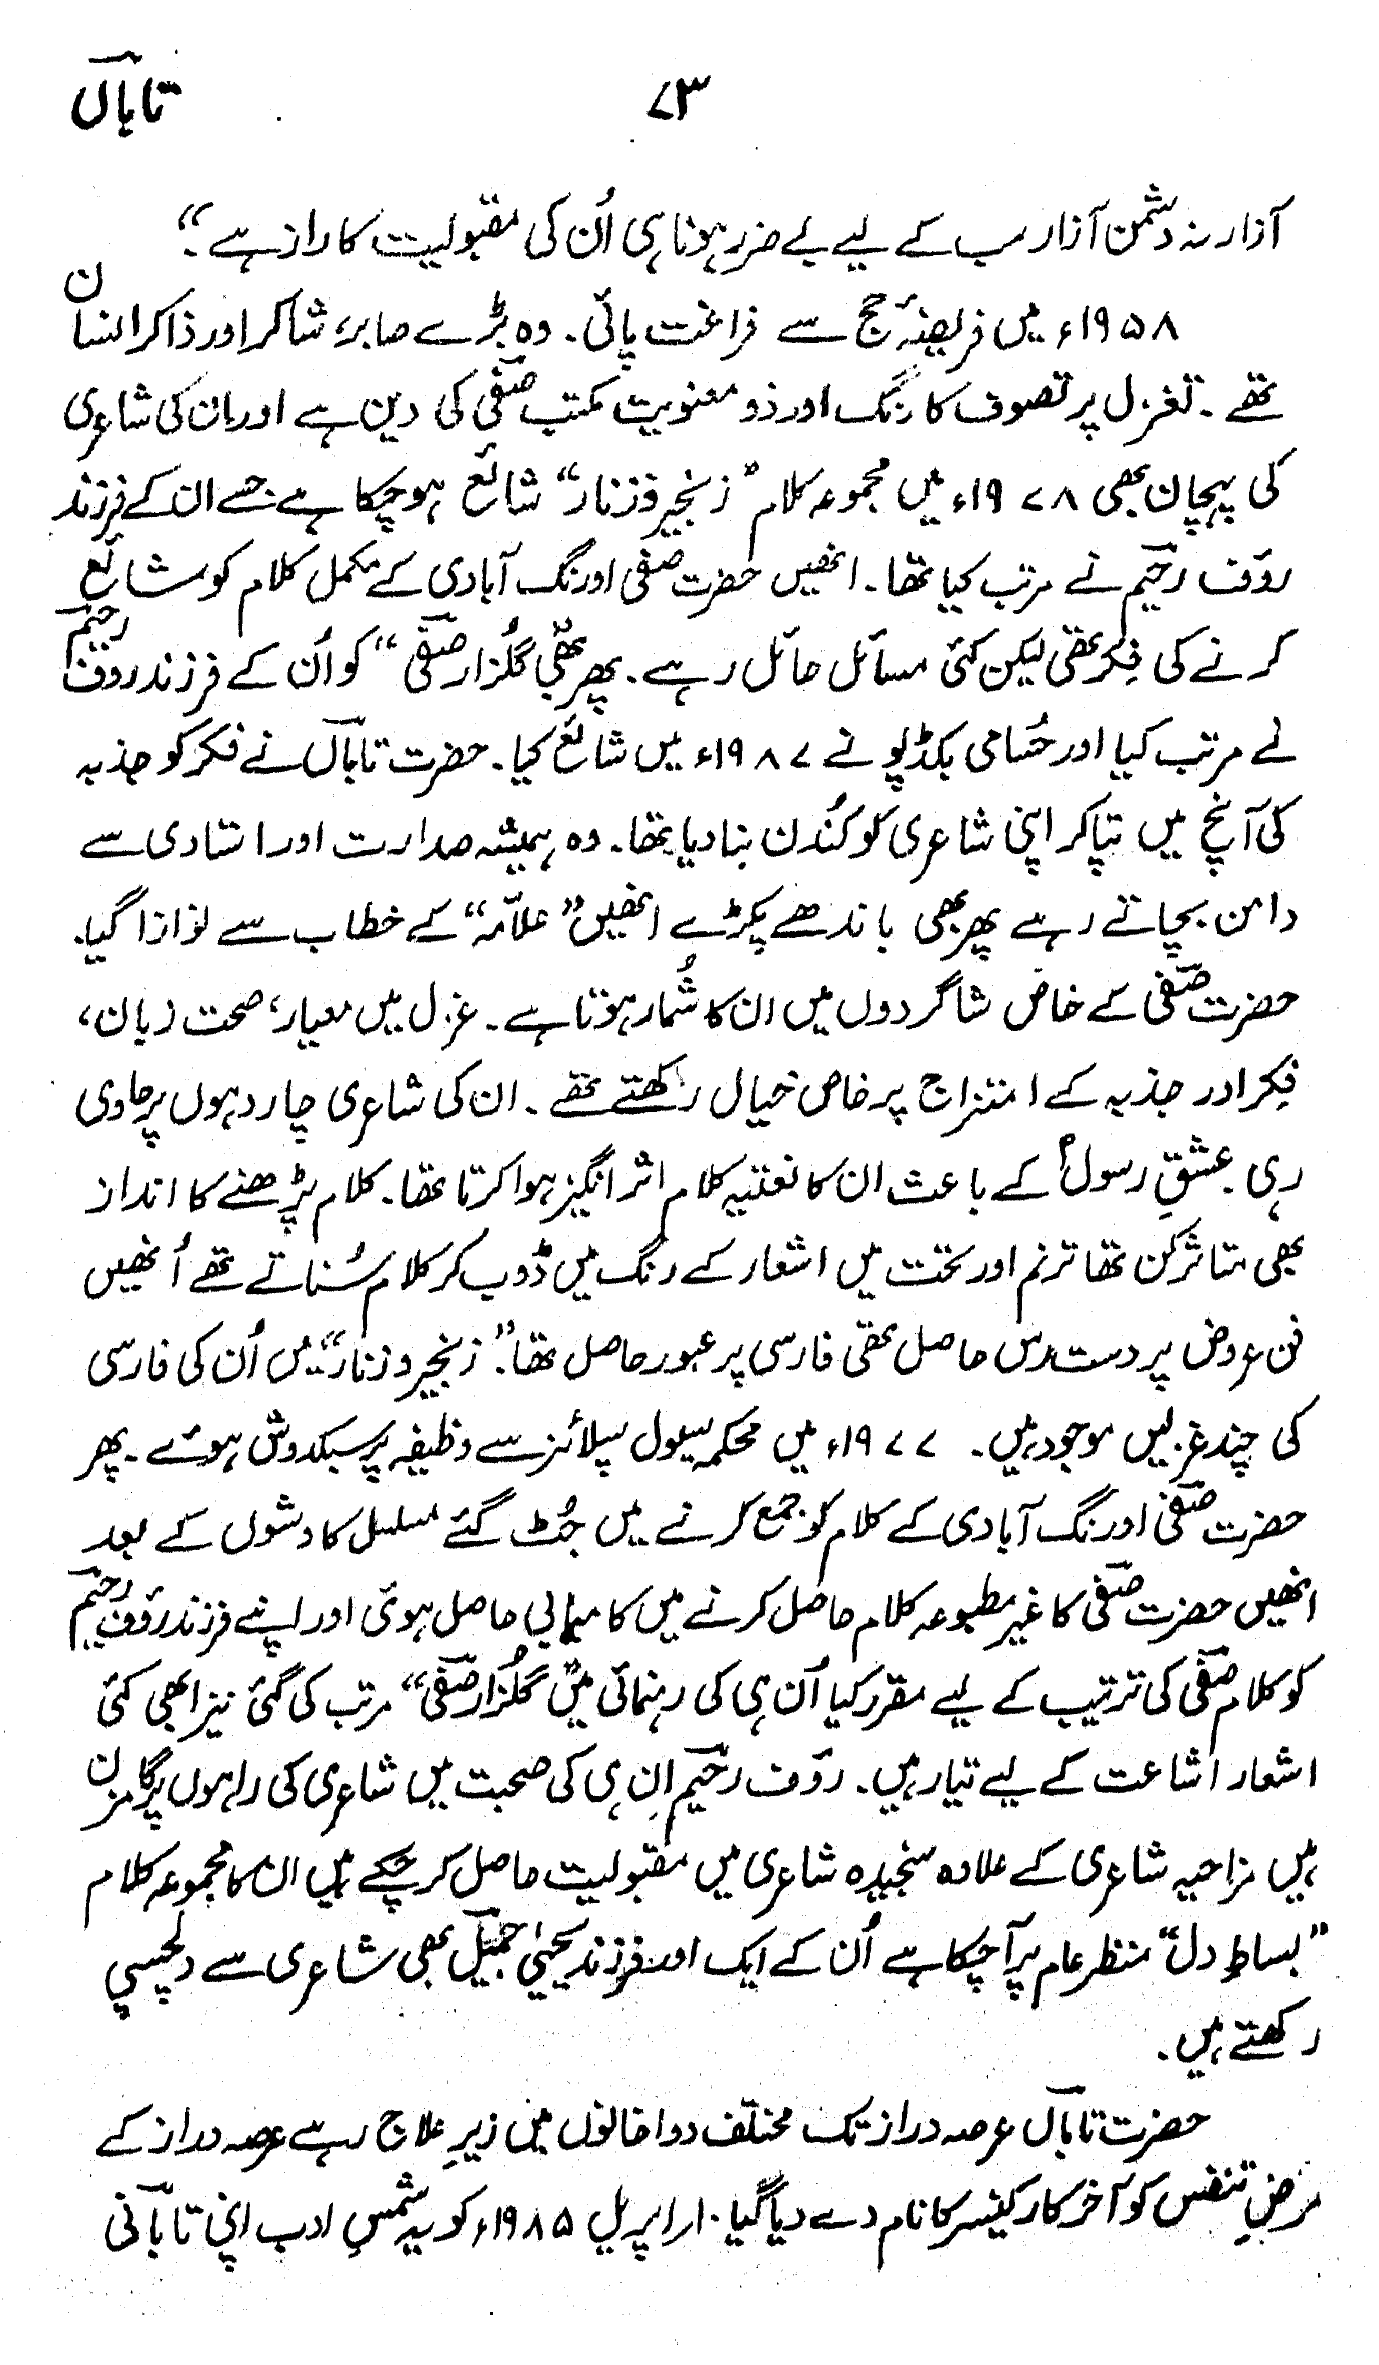 ۷۳ تاباں
آزار نہ دشمن آزار سب کے لیے بے ضرر ہونا ہی اُن کی مقبولیت کا راز ہے۔“
۱۹۵۸ء میں فریضۂ حج سے فراغت پائی۔ وہ بڑے صابر، شاکر اور ذاکر انسان
تھے۔ تغزل پر تصوف کا رنگ اور ذو معنویت مکتب صفیؔ کی دین ہے اور ان کی شاعری
کی پہچان بھی ۱۹۷۸ء میں مجموعہ کلام ”زنجیر و زنار“ شائع ہو چکا ہے جسے ان کے فرزند
رؤف رحیمؔ نے مرتب کیا تھا۔ انھیں حضرت صفیؔ اورنگ آبادی کے مکمل کلام کو شائع
کرنے کی فِکر تھی لیکن کئی مسائل حائل رہے۔ پھر بھی ”گلُزار صفیؔ“ کو اُن کے فرزند رؤف رحیمؔ
نے مرتب کیا اور حُسامی بکڈپو نے ۱۹۸۷ء میں شائع کیا۔ حضرت تاباںؔ نے فکر کو جذبہ
کی آنچ میں تپا کر اپنی شاعری کو کُندن بنا دیا تھا۔ وہ ہمیشہ صدارت اور استادی سے
دامن بچاتے رہے پھر بھی باندھے پکڑے انھیں ”علاّمہ“ کے خطاب سے نوازا گیا۔
حضرت صفیؔ کے خاص شاگردوں میں ان کا شُمار ہوتا ہے۔ غزل میں معیار، صحت زبان،
فِکر اور جذبہ کے امتزاج پر خاص خیال رکھتے تھے۔ ان کی شاعری چار دہوں پر حاوی
رہی۔ عشقِ رسولؐ کے باعث ان کا نعتیہ کلام اثر انگیز ہوا کرتا تھا۔ کلام پڑھنے کا انداز
بھی متاثر کن تھا ترنم اور تحت میں اشعار کے رنگ میں ڈوب کر کلام سُناتے تھے اُنھیں
فن عروض پر دست رس حاصل تھی فارسی پر عبور حاصل تھا۔ ”زنجیر و زنار“ میں اُن کی فارسی
کی چند غزلیں موجود ہیں۔ ۱۹۷۷ء میں محکمہ سیول سپلائز سے وظیفہ پر سبکدوش ہوئے۔ پھر
حضرت صفیؔ اورنگ آبادی کے کلام کو جمع کرنے میں جُٹ گئے مسلسل کاوشوں کے بعد
انھیں حضرت صفیؔ کا غیر مطبوعہ کلام حاصل کرنے میں کامیابی حاصل ہوئی اور اپنے فرزند رؤف رحیمؔ
کو کلام صفیؔ کی ترتیب کے لیے مقرر کیا اُن ہی کی رہنمائی میں ”گلُزار صفیؔ“ مرتب کی گئی نیز ابھی کئی
اشعار اشاعت کے لیے تیار ہیں۔ رؤف رحیمؔ اِن ہی کی صحبت میں شاعری کی راہوں پر گامزن
ہیں مزاحیہ شاعری کے علاوہ سنجیدہ شاعری میں مقبولیت حاصل کر چکے ہیں ان کا مجموعہ کلام
”بساطِ دل“ منظر عام پر آ چکا ہے اُن کے ایک اور فرزند یحییٰ جمیلؔ بھی شاعری سے دلچسپی
رکھتے ہیں۔
حضرت تاباںؔ عرصہ دراز تک مختلف دواخانوں میں زیرِ علاج رہے عرصہ دراز کے
مرضِ تنفس کو آخر کار کینسر کا نام دے دیا گیا۔ ۱۰ اپریل ۱۹۸۵ء کو یہ شمسِ ادب اپنی تابانی